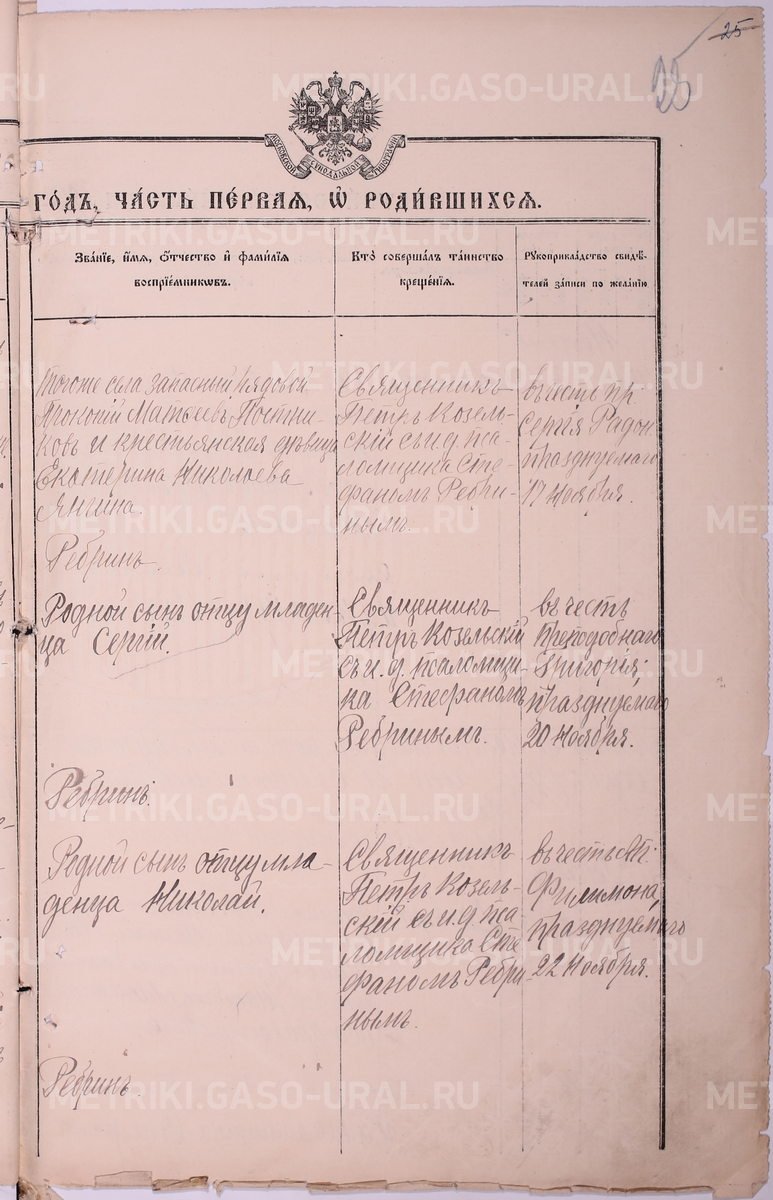 25
25
МОСКОВСКОЙ СѴНОДАЛЬНОЙ ТИПОГРАФІИ
ГО́ДЪ, ЧА́СТЬ ПЕ́РВАѦ, Ѡ҆ РОДИ́ВШИХСѦ.
Зва́нїе, и҆́мѧ, ѻ҆́тчество и҆ фами́лїѧ
воспрїе́мникѡвъ.
Кто̀ соверша́лъ та́инство
креще́нїѧ.
Рꙋкоприкла́дство свидѣ́-
телей за́писи по жела́нїю
Тогоже села запасный рядовой
Прокопій Матѳеевъ Постни-
ковъ и крестьянская девица
Екатерина Николаева
Янгина.
Ребринъ.
Священникъ
Петръ Козель-
скій съ и. д. пса-
ломщика Сте-
фаномъ Ребри-
нымъ.
въ честь пр:
Сергія Радон:
празднуемаго
17 Ноября.
Родной сынъ отцу младен-
ца Сергій.
Ребринъ.
Священникъ
Петръ Козельскій
съ и. д. псаломщи-
ка Стефаномъ
Ребринымъ.
въ честь
Преподобнаго
Григорія,
празднуемаго
20 Ноября.
Родной сынъ отцу мла-
денца Николай.
Ребринъ.
Священникъ
Петръ Козель-
скій съ и. д. пса-
ломщика Сте
фаномъ Ребри
нымъ.
въ честь Ап:
Филимона,
празднуемаго
22 Ноября.
METRIKI.GASO-URAL.RU